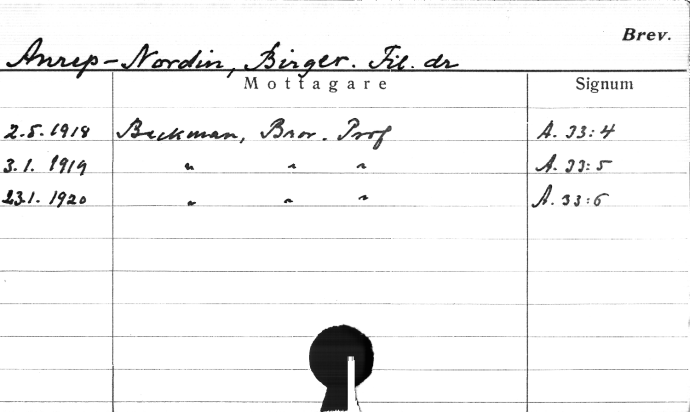 Brev.
Anrep-Nordin, Birger. Fil. dr
Mottagare Signum
2.5.1918 Beckman, Bror. Prof A. 33:4
3.1. 1919 " " " A. 33:5
23.1. 1920 " " " A. 33:6